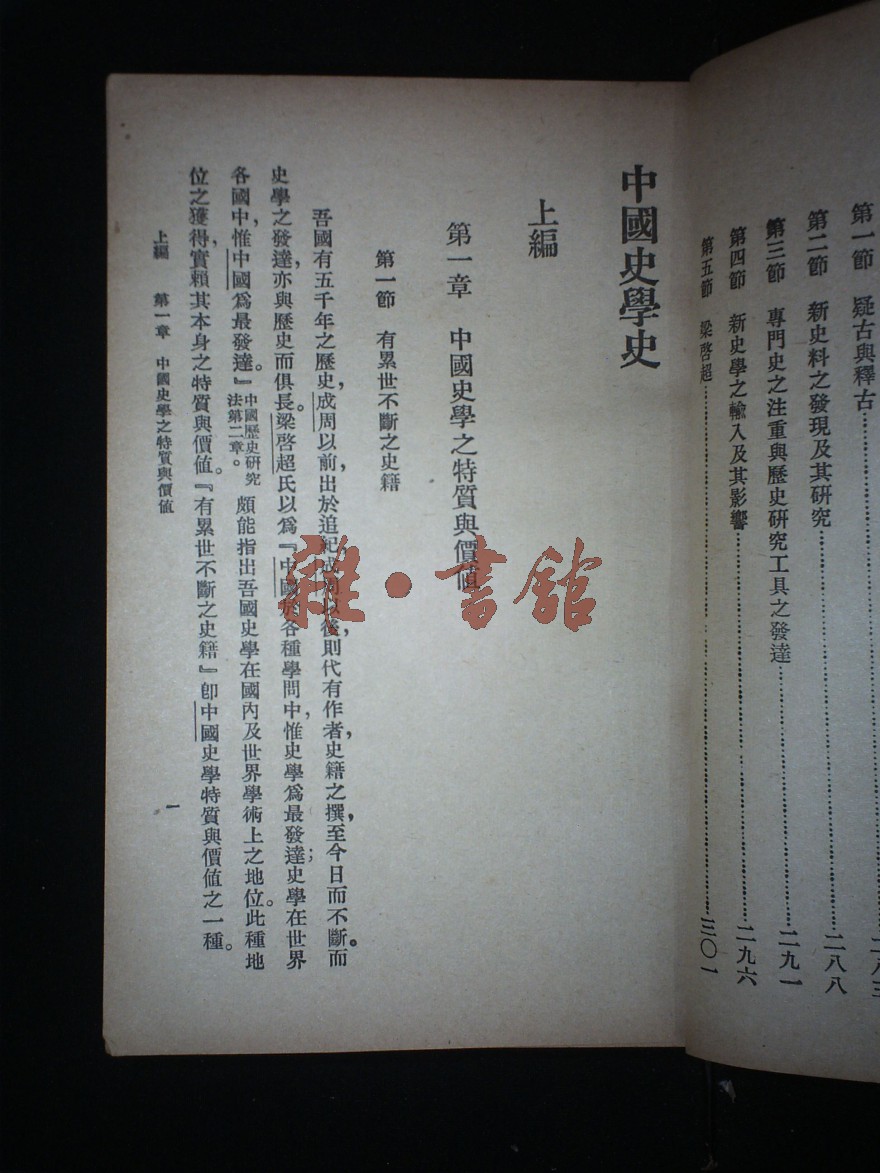 第一節　疑古與釋古……二八三
第二節　新史料之發現及其研究……二八八
第三節　專門史之注重與歷史研究工具之發達……二九一
第四節　新史學之輸入及其影響……二九六
第五節　梁啓超……三〇一
中國史學史
上編
第一章　中國史學之特質與價値
第一節　有累世不斷之史籍
吾國有五千年之歷史，成周以前出於追紀，成周以後，則代有作者，史籍之撰，至今日而不斷。而
史學之發達，亦與歷史而俱長。梁啓超氏以爲『中國於各種學問中，惟史學爲最發達；史學在世界
各國中，惟中國爲最發達。』中國歷史研究法第二章。頗能指出吾國史學在國內及世界學術上之地位。此種地
位之獲得，實賴其本身之特質與價値。『有累世不斷之史籍』卽中國史學特質與價値之一種。
上編　第一章　中國史學之特質與價値
一
雜·書館